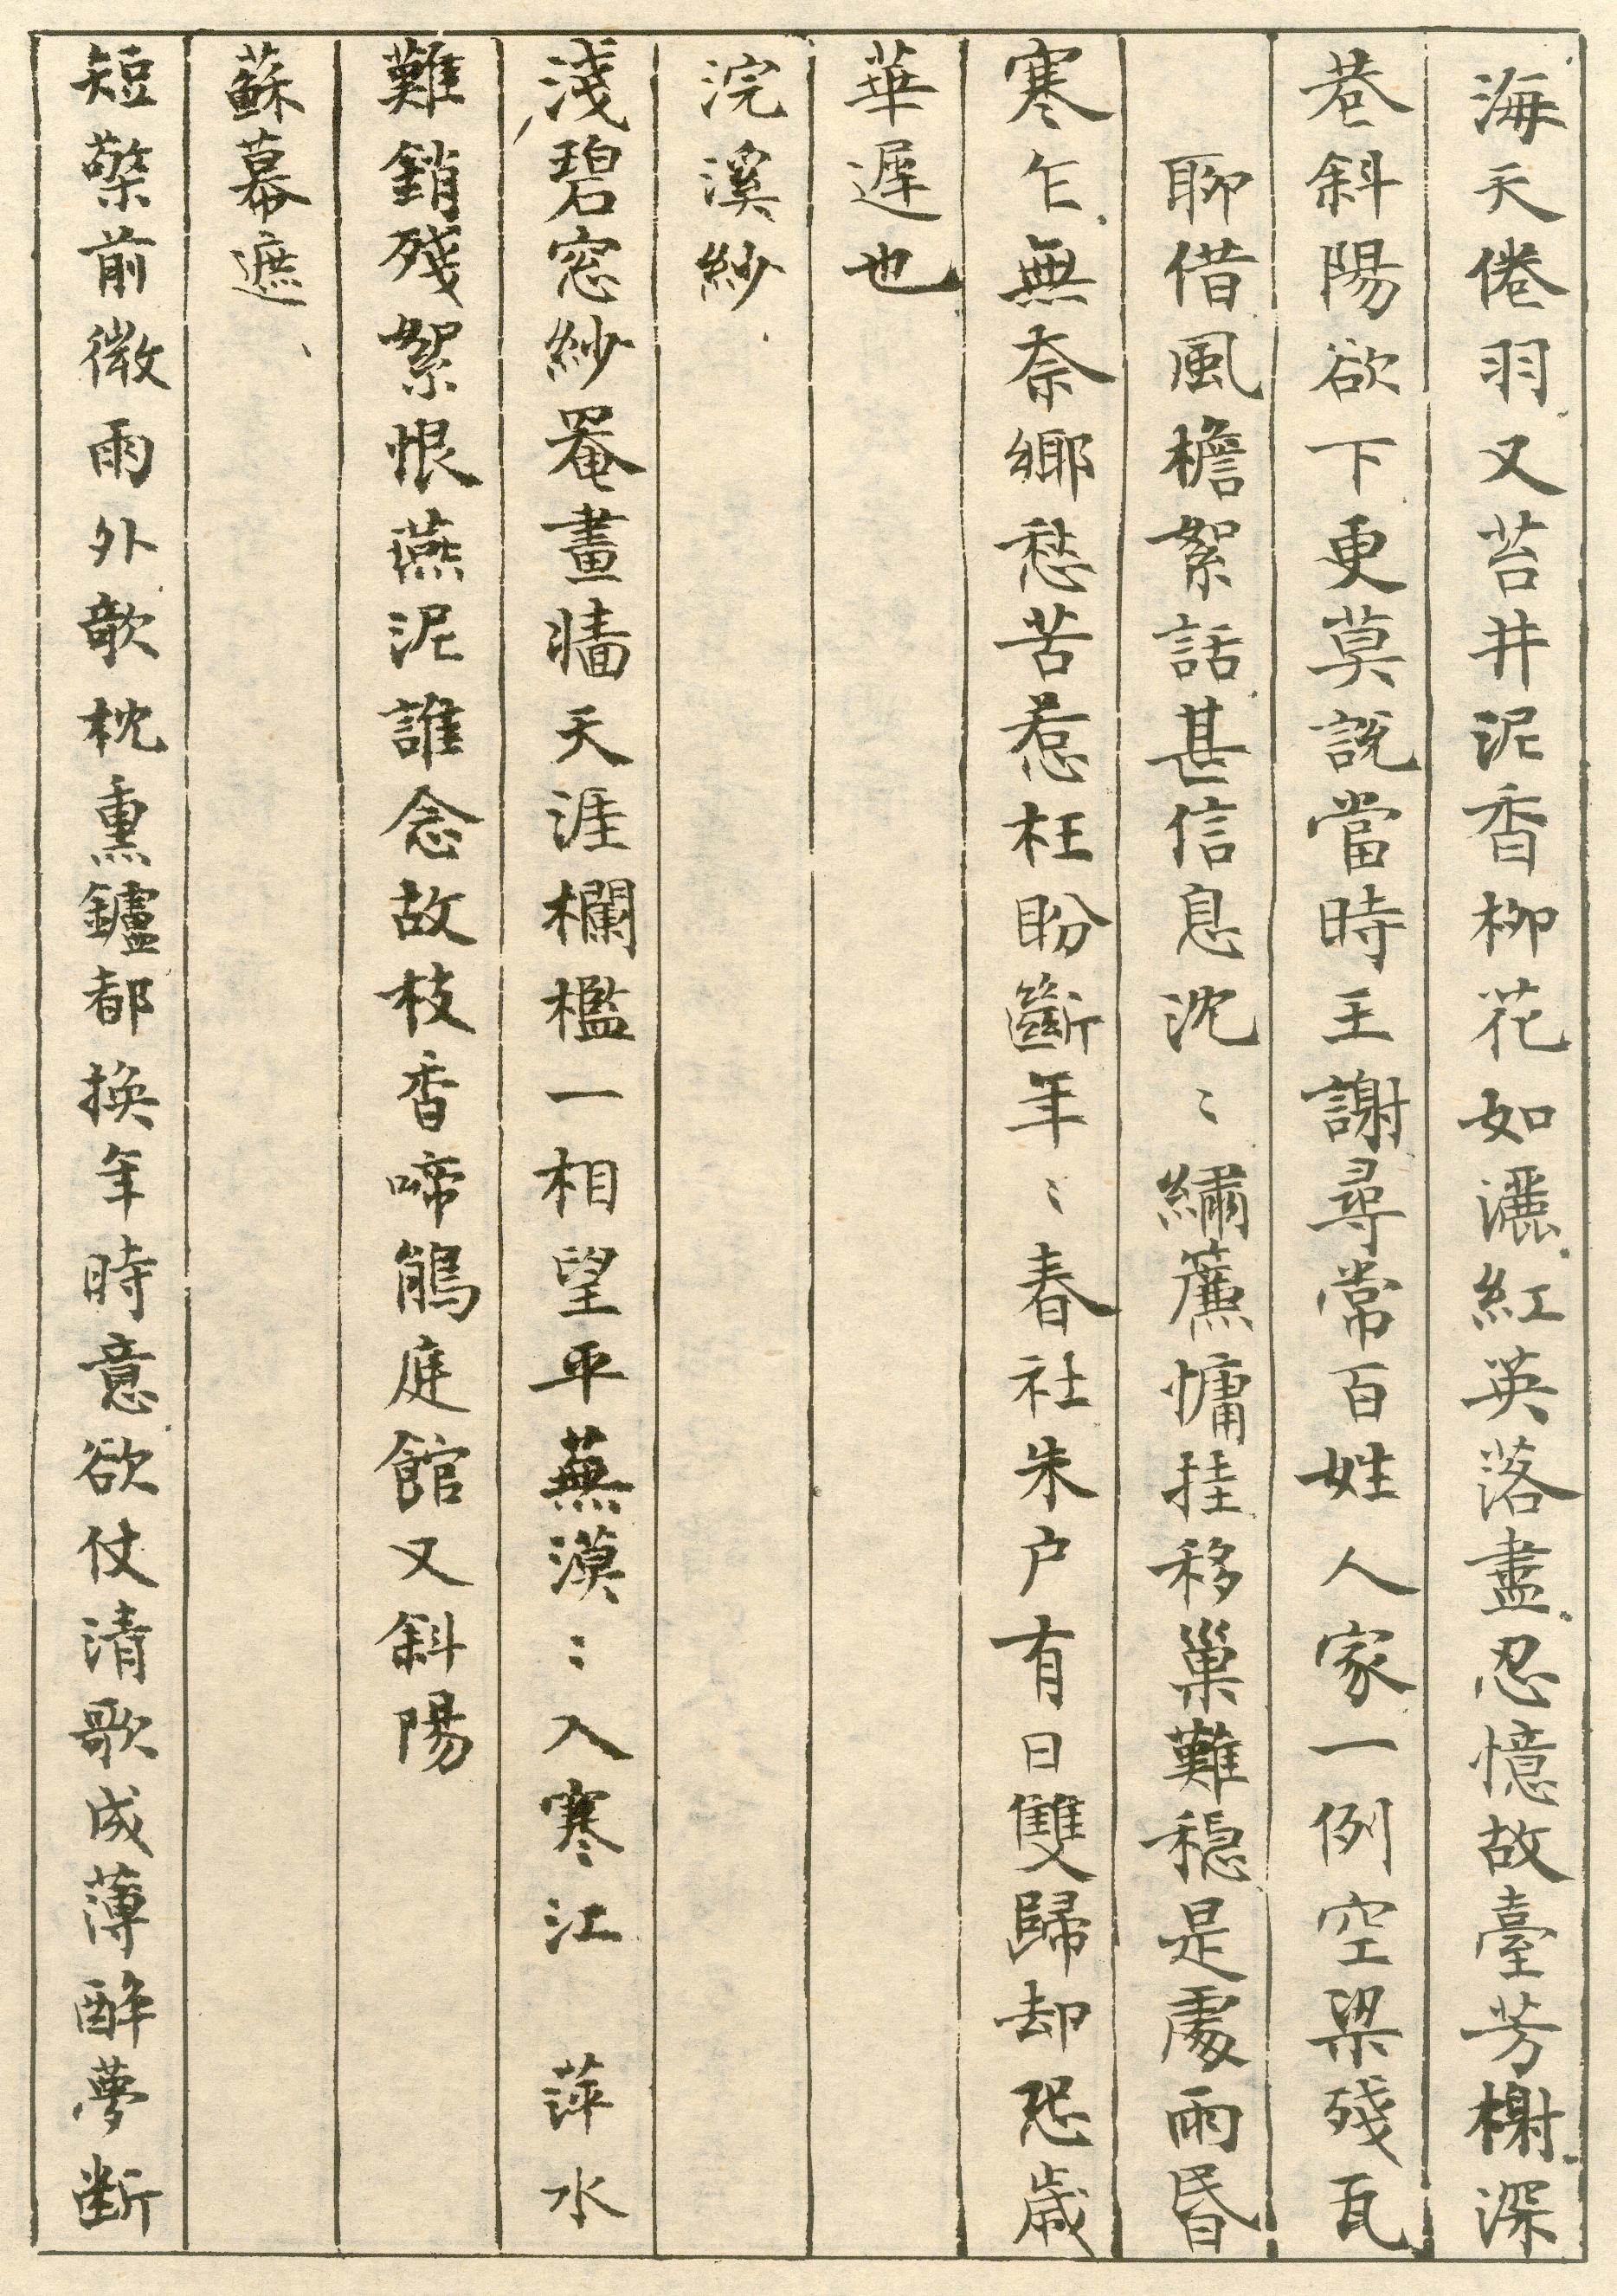 海天倦羽又苔井泥香柳花如灑紅英落盡忍憶故臺芳榭深
巷斜陽欲下更莫說當時王謝尋常百姓人家一例空梁殘瓦
聊借風檐絮話甚信息沈〻繡簾慵挂移巢難穩是處雨昏
寒乍無奈鄉愁苦惹枉盼斷年〻春社朱户有日雙歸却恐歲
華遲也
浣溪紗
淺碧窓紗罨畫牆天涯欄檻一相望平蕪漠〻入寒江　萍水
難銷殘絮恨燕泥誰念故枝香啼鵑庭館又斜陽
蘇幕遮
短檠前微雨外欹枕熏鑪都換年時意欲仗清歌成薄醉夢斷